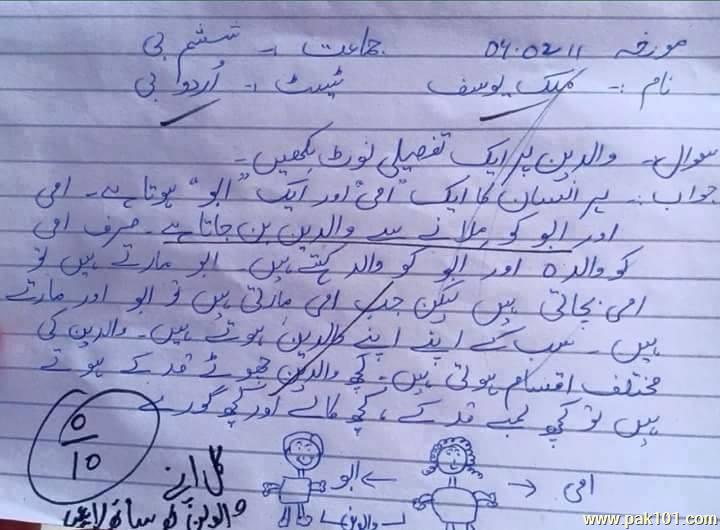 مورخہ 04.02.11 جماعت :- ششم بی
نام :- ملک یوسف ٹیسٹ :- اُردو بی
سوال :- والدین پر ایک تفصیلی نوٹ لکھیں -
جواب :- ہر انسان کا ایک "امی" اور ایک "ابو" ہوتا ہے - امی
اور ابو کو ملانے سے والدین بن جاتا ہے - صرف امی
کو والدہ اور ابو کو والد کہتے ہیں - ابو مارتے ہیں تو
امی بچاتی ہیں لیکن جب امی مارتی ہیں تو ابو اور مارتے
ہیں - سب کے اپنے اپنے والدین ہوتے ہیں - والدین کی
مختلف اقسام ہوتی ہیں - کچھ والدین چھوٹے قد کے ہوتے
ہیں تو کچھ لمبے قد کے ، کچھ کالے اور کچھ گورے
0/10
کل اپنے
والدین کو ساتھ لائیں
ابو
امی
والدین
www.pak101.com